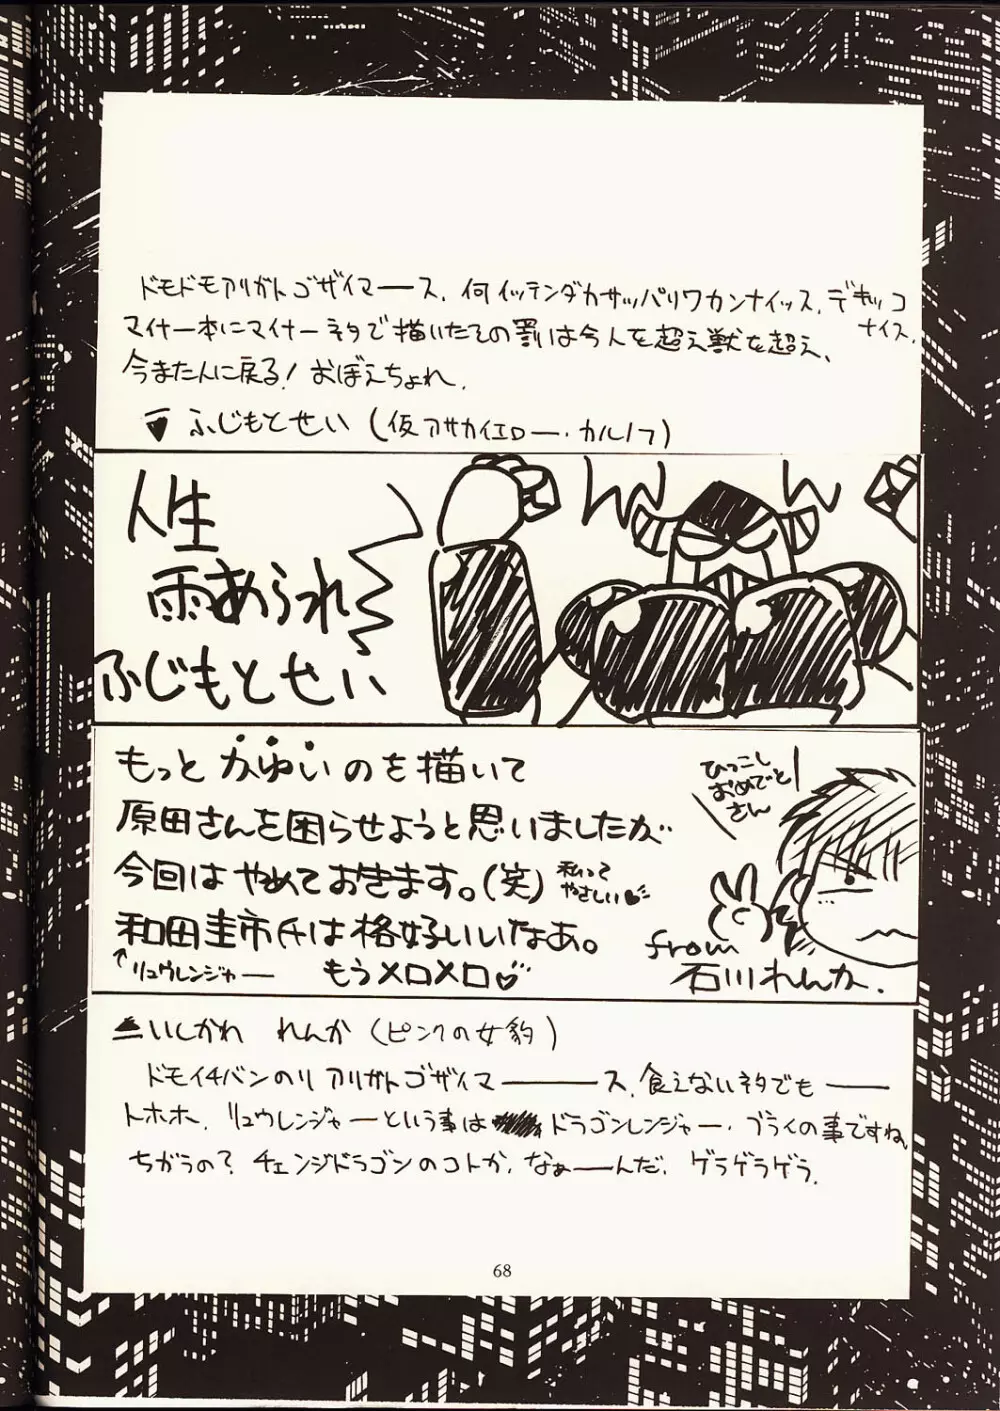 ドモドモアリガトゴザイマース．何イッテンダカサッパリワカンナイッス．デモカッコナイス．
マイナー本にマイナーネタで描いたその罰は今人を超え獣を超え、
今また人に戻る！おぼえちょれ．
ふじもとせい（仮アサカイエロー・カルノフ）
人生
雨あられ
ふじもとせい
もっとかゆいのを描いて
原田さんを困らせようと思いましたが
今回はやめておきます。（笑）私ってやさしい♥
和田圭市氏は格好いいなあ。
↑リュウレンジャー もうメロメロ♡
ひっこし
おめでと
さん
from
石川れんか．
いしかわ れんか（ピンクの女豹）
ドモイチバンのリ アリガトゴザイマーース．食えないネタでもー
トホホ．リュウレンジャーという事は ドラゴンレンジャー．ブライの事ですね、
ちがうの？チェンジドラゴンのコトか．なぁーんだ．ゲラゲラゲラ．
68